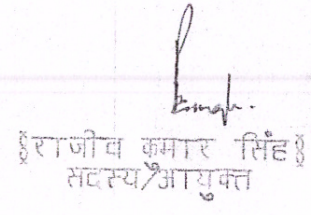 §राजीव कुमार सिंह§
सदस्य/आयुक्त